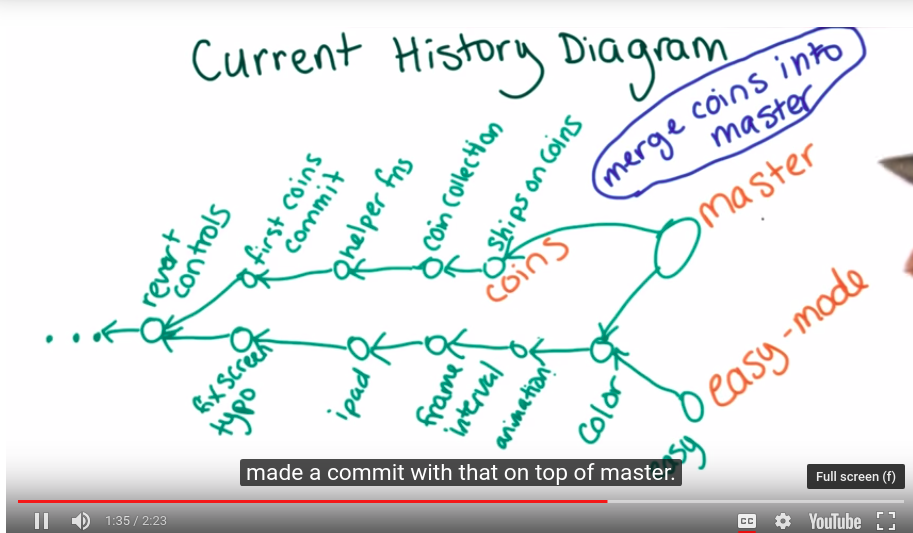 Current History Diagram
merge coins into
master
master
easy-mode
revert
controls
first coins
commit
helper fns
coin collection
ships on coins
coins
fix screen
typo
ipad
frame
interval
animation
color
easy
made a commit with that on top of master.
Full screen (f)
1:35 / 2:23
CC
YouTube